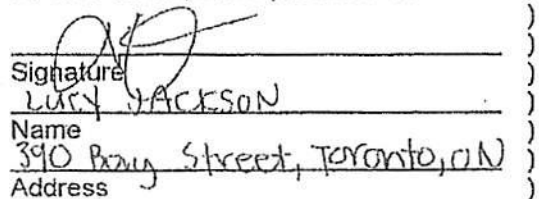 )
)
Signature )
LUCY JACKSON )
Name )
390 Bay Street, Toronto, ON )
Address )